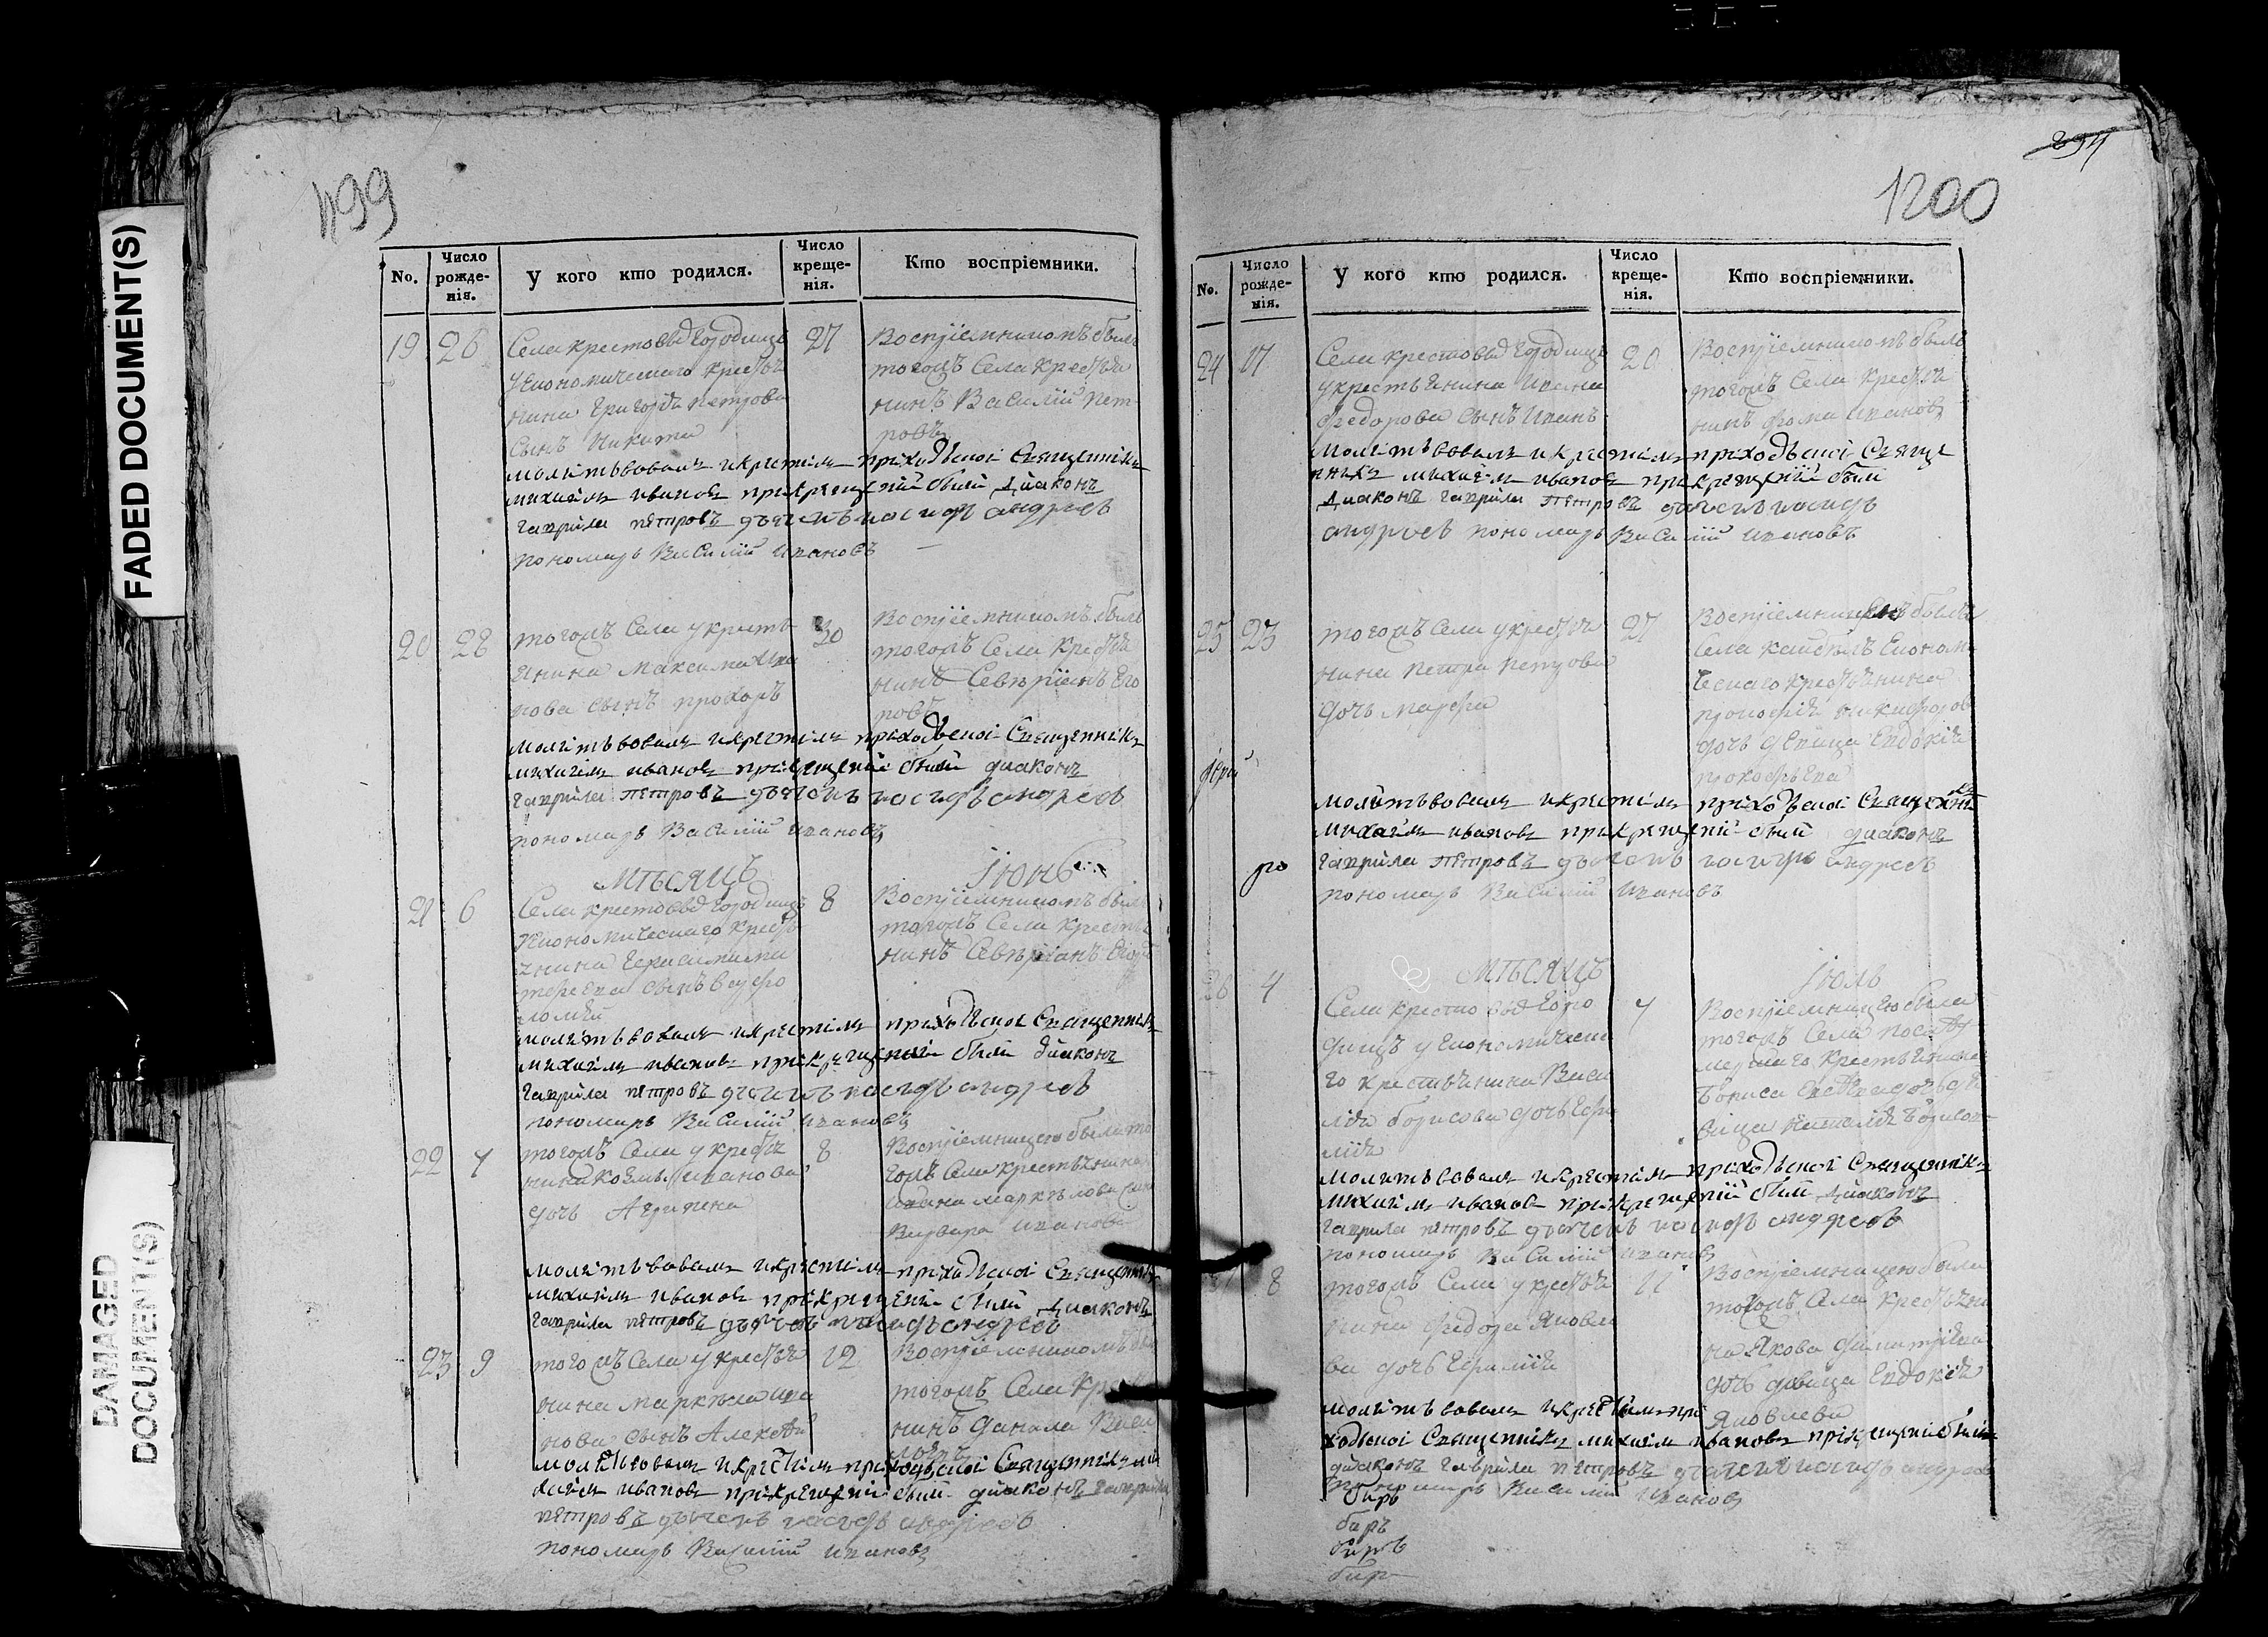 FADED DOCUMENT(S)
DAMAGED DOCUMENT(S)
1199
No.
Число рожде-нія.
У кого кто родился.
Число креще-нія.
Кто воспріемники.
19 26
Села крестовыхъ городищъ
Экономическаго крестья
нина Григорья петрова
сынъ Никита
27
Воспріемникомъ былъ
тогожъ Села крестья
нинъ Василій Пет
ровъ
молитвовалъ и крестилъ приходской Священникъ
михаилъ ивановъ при крещеніи были диаконъ
гаврила петровъ дьячекъ иосифъ андреевъ
пономарь Василій ивановъ
20 28
тогожъ Села у крестья
янина Максима Ива
нова сынъ прохоръ
30
Воспріемникомъ былъ
тогожъ Села крестья
нинъ Севѣріянъ Его
ровъ
молитвовалъ и крестилъ приходской Священникъ
михаилъ ивановъ при крещеніи были диаконъ
гаврила петровъ дьячекъ иосифъ андреевъ
пономарь Василій ивановъ
мѣсяцъ Іюнь
21 6
Села крестовыхъ городищъ
Экономическаго крестья
янина Герасима
сынъ
8
Воспріемникомъ былъ
тогожъ Села крестья
нинъ Севѣріанъ
молитвовалъ и крестилъ приходской Священникъ
михаилъ ивановъ при крещеніи были диаконъ
гаврила петровъ дьячекъ иосифъ андреевъ
пономарь Василій ивановъ
22 7
тогожъ Села у крестья
нина козмы иванова
дочь Агрипена
8
Воспріемницею была то
гожъ Села крестьянина
Варвара иванова
молитвовалъ и крестилъ приходской Священникъ
михаилъ ивановъ при крещеніи были диаконъ
гаврила петровъ дьячекъ иосифъ андреевъ
23 9
тогожъ Села у крестья
нина маркела ива
нова сынъ Алексѣй
12
Воспріемникомъ былъ
тогожъ Села крестья
нинъ данила Васи
молитвовалъ и крестилъ приходской Священникъ ми
хаилъ ивановъ при крещеніи были диаконъ гаврила
петровъ дьячекъ иосифъ андреевъ
пономарь Василій ивановъ
294
1200
No.
Число рожде-нія.
У кого кто родился.
Число креще-нія.
Кто воспріемники.
24 17
Села крестовыхъ городищъ
у крестьянина ивана
федорова сынъ иванъ
20
Воспріемникомъ былъ
тогожъ Села крестья
нинъ фома ивановъ
молитвовалъ и крестилъ приходской Свяще
нникъ михаилъ ивановъ при крещеніи были
диаконъ гаврила петровъ дьячекъ иосифъ
андреевъ пономарь Василій ивановъ
25 23
тогожъ Села у крестья
нина петра петрова
дочь марфа
27
была
Села Економи
ческаго крестьянина
никифорова
дочь девица Евдокія
прокофьева
молитвовалъ и крестилъ приходской Священникъ
михаилъ ивановъ при крещеніи были диаконъ
гаврила петровъ дьячекъ иосифъ андреевъ
пономарь Василій ивановъ
мѣсяцъ Іюль
26 4
Села крестовыхъ Горо
дищъ у Економическа
го крестьянина Васи
лія борисова дочь Ефи
мія
7
Воспріемницею была
тогожъ Села
крестьянина
бориса
молитвовалъ и крестилъ приходской Священникъ
михаилъ ивановъ при крещеніи были диаконъ
гаврила петровъ дьячекъ иосифъ андреевъ
пономарь Василій ивановъ
8
тогожъ Села у крестья
нина федора яковле
ва дочь
11
Воспріемницею была
тогожъ Села крестьяни
на Якова димитріева
дочь девица Евдокія
Яковлева
молитвовалъ и крестилъ при
ходской Священникъ михаилъ ивановъ при крещеніи были
диаконъ гаврила петровъ дьячекъ иосифъ андреевъ
пономарь Василій ивановъ